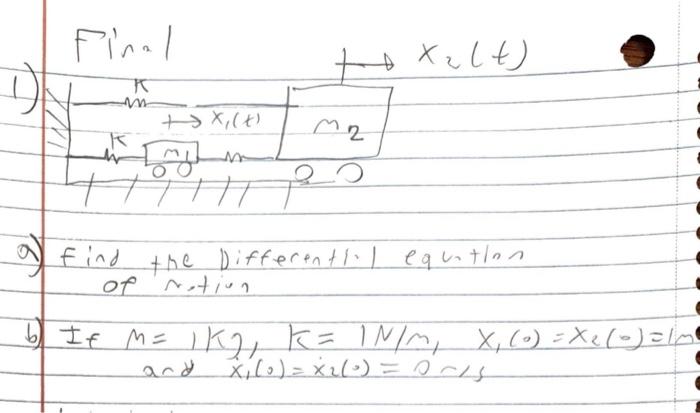 Final
x₂(t)
1)
K
x₁(t)
m₂
K
m₁
a) Find the Differential equation
of motion
b) If M = 1Kg, K = 1N/m, x₁(0) = x₂(0) = 1m
and ẋ₁(0) = ẋ₂(0) = 0 m/s